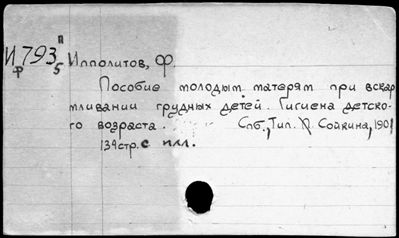 п
И 793
ф 5
Ипполитов, Ф.
Пособие молодым матерям при вскар
мливании грудных детей. Гигиена детско-
го возраста. Спб., Тип. П. Сойкина, 1901
134 стр. с илл.